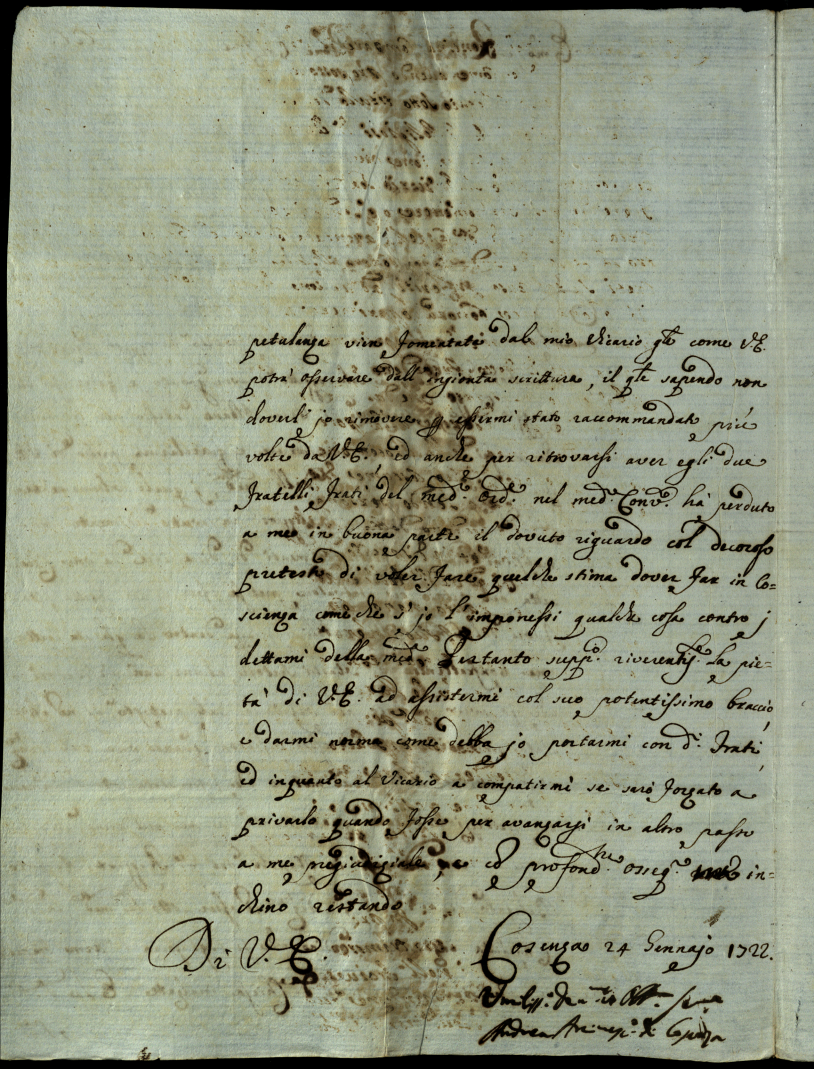 petulanza vien fomentata dal mio Vicario q.le come V.E.
potrà osservare dall'ingionta scrittura, il q.le sapendo non
doverl' jo rimovere p essermi stato raccommandato più
volte da V.E., ed anche per ritrovarsi aver egli due
fratelli frati del med.o Ord.e nel med.o Conv.o hà perduto
a me in buona parte il dovuto riguardo col decoroso
pretesto di voler fare qualche stima dover far in co=
scienza come che s' jo l'imponessi qualche cosa contro j
dettami della med.a Pertanto supp.co riverentem.te la pie=
tà di V.E. ad assistermi col suo potentissimo braccio,
e darmi norma come debba jo portarmi con d.i frati,
ed inquanto al Vicario a compatirmi se sarò forzato a
privarlo quando fosse per avanzarsi in altro passo
a me pregiudiziale, e co profond.mo osseq.o in=
chino restando
Di V.E. Cosenza 24 Gennajo 1722.
Umiliss.o
Andrea Arcivesc.o di Cosenza